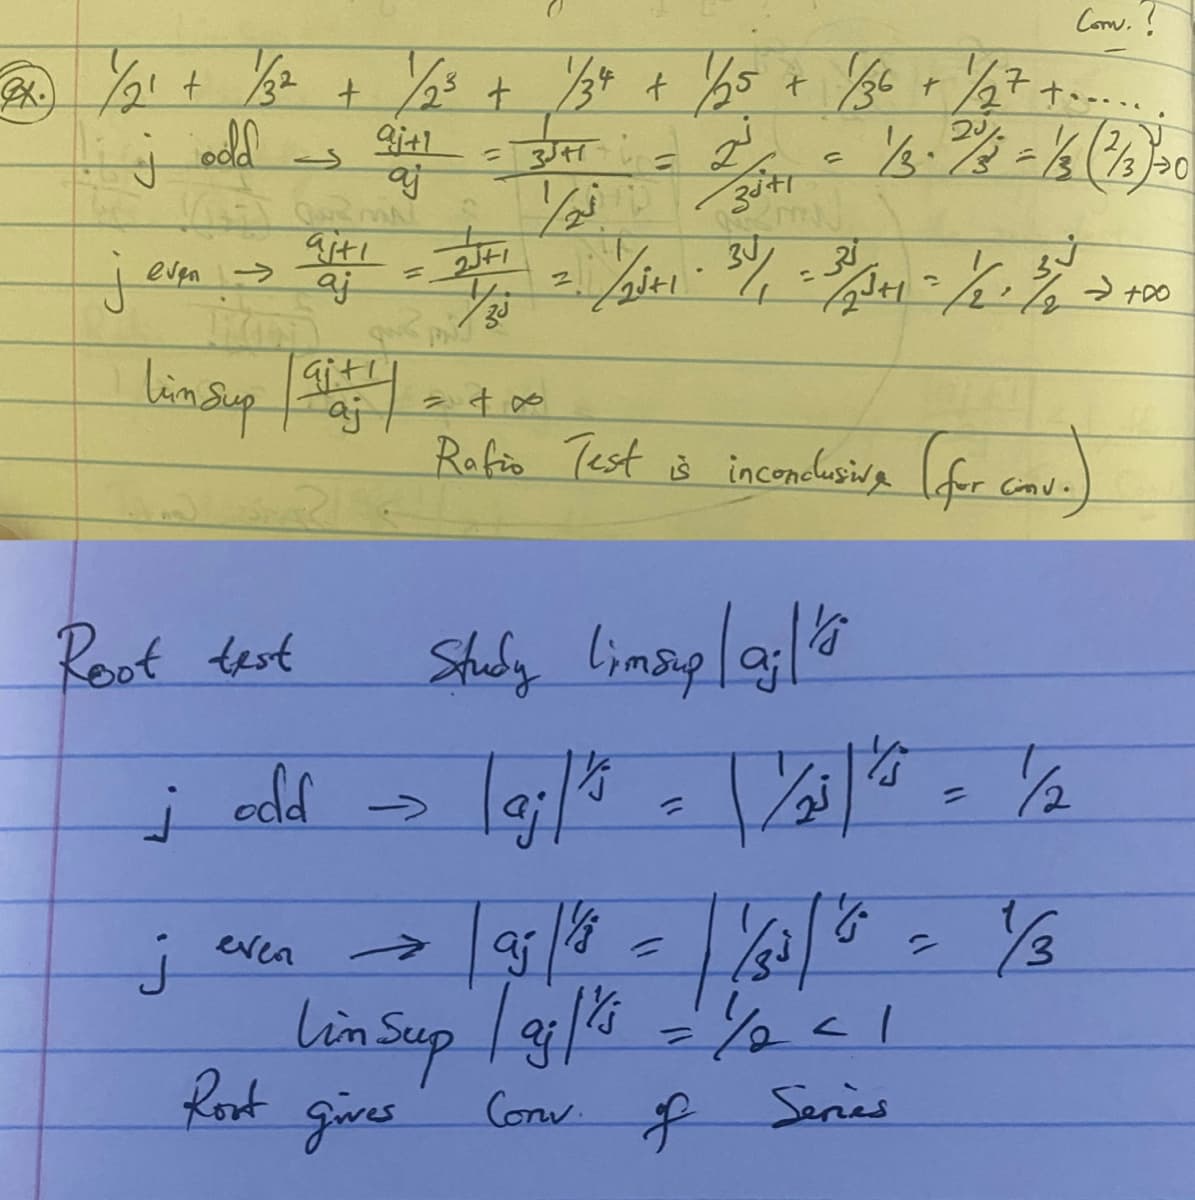 Conv. ?
Ex. 1/2^1 + 1/3^2 + 1/2^3 + 1/3^4 + 1/2^5 + 1/3^6 + 1/2^7 + .....
j odd → a_{j+1}/a_j = (1/3^{j+1})/(1/2^j) = 2^j/3^{j+1} = 1/3 · 2^j/3^j = 1/3 (2/3)^j → 0
j even → a_{j+1}/a_j = (1/2^{j+1})/(1/3^j) = 1/2^{j+1} · 3^j/1 = 3^j/2^{j+1} = 1/2 · 3/2^j → +∞
lim sup |a_{j+1}/a_j| = + ∞
Ratio Test is inconclusive (for conv.)
Root test Study limsup |a_j|^{1/j}
j odd → |a_j|^{1/j} = |1/2^j|^{1/j} = 1/2
j even → |a_j|^{1/j} = |1/3^j|^{1/j} = 1/3
lim sup |a_j|^{1/j} = 1/2 < 1
Root gives Conv. of Series